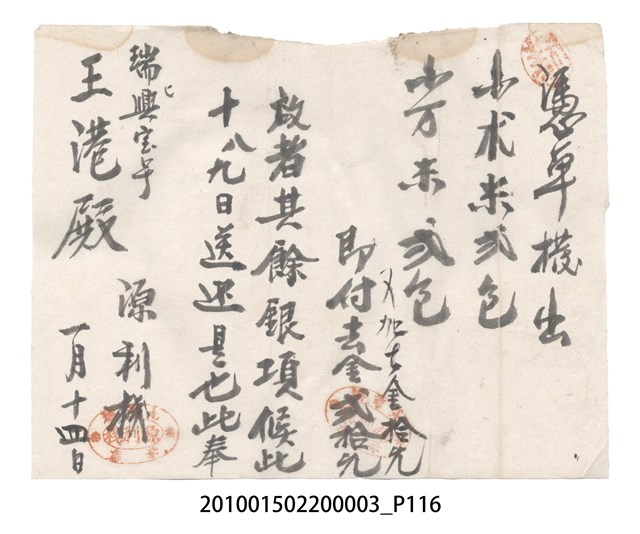 憑單撥出
小朮米弍包
小万米弍包
又加去金拾元
即付去金弍拾元
敬者其餘銀項候此
十八九日送还是也此奉
瑞興宝号
王港殿
源利棧
一月十四日
201001502200003_P116